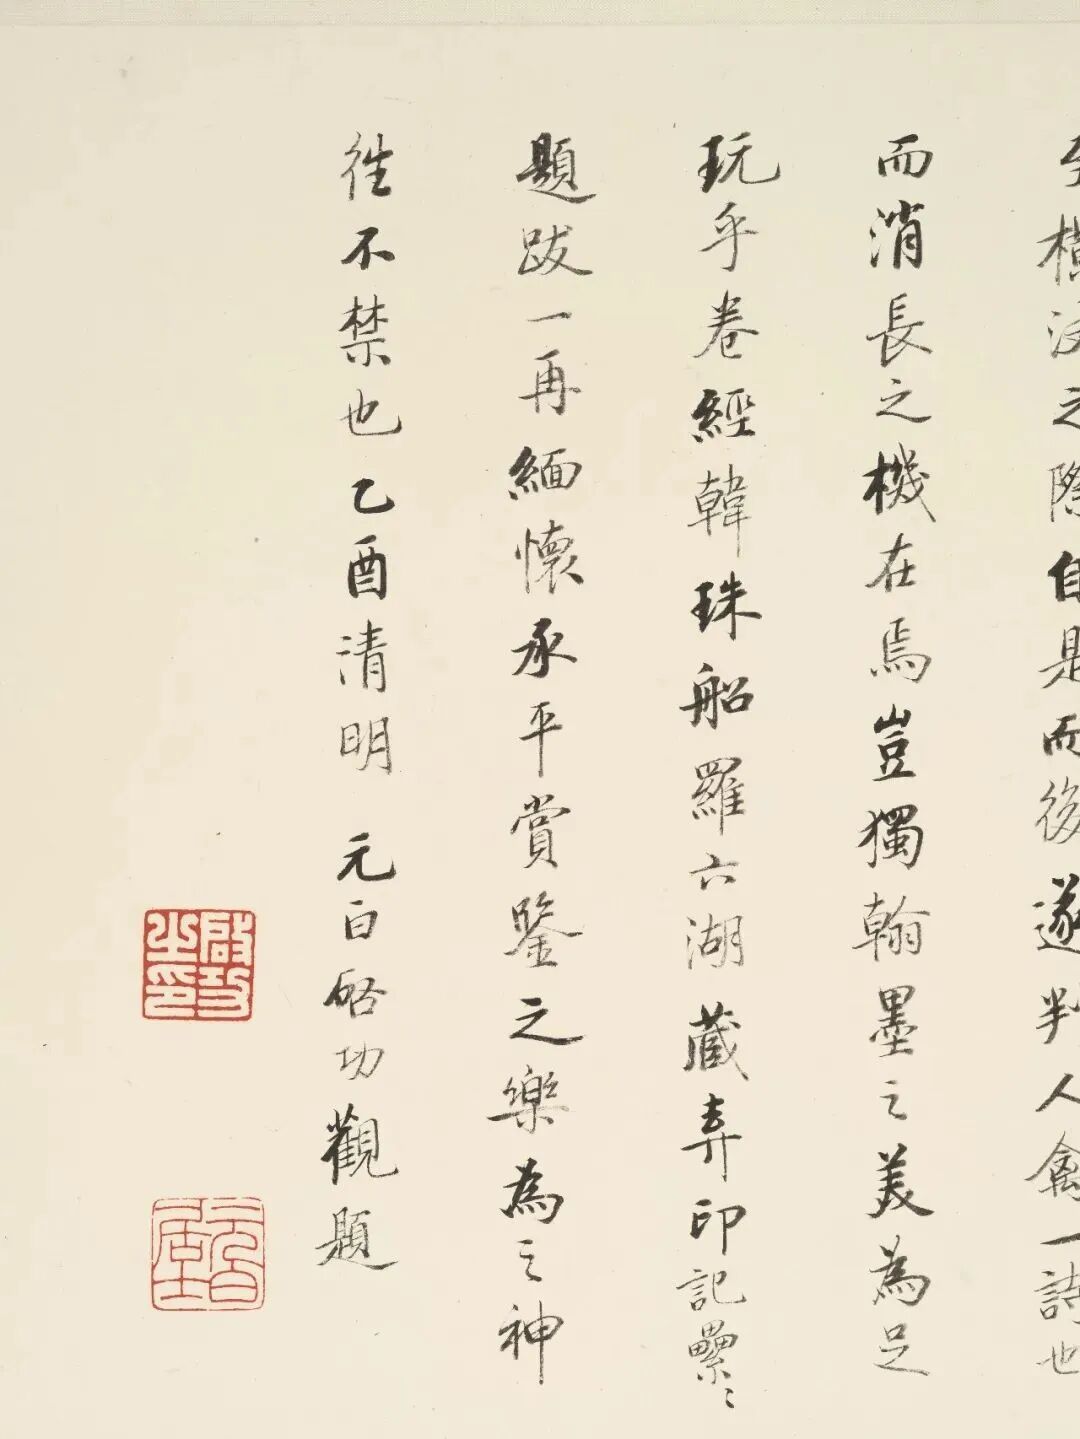 橫決之際自是而後遂判人禽一詩也
而消長之機在焉豈獨翰墨之美為足
玩乎卷經韓珠船羅六湖藏弆印記纍〻
題跋一再緬懷承平賞鑒之樂為之神
往不禁也乙酉清明 元白啓功觀題
啟功之印
元白居士